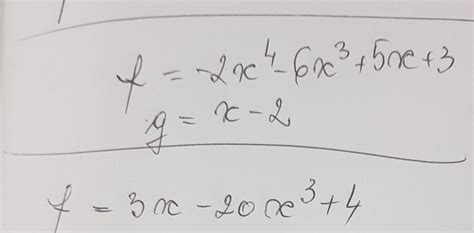 f = -2x⁴-6x³+5x+3
g = x-2
f = 3x-20x³+4